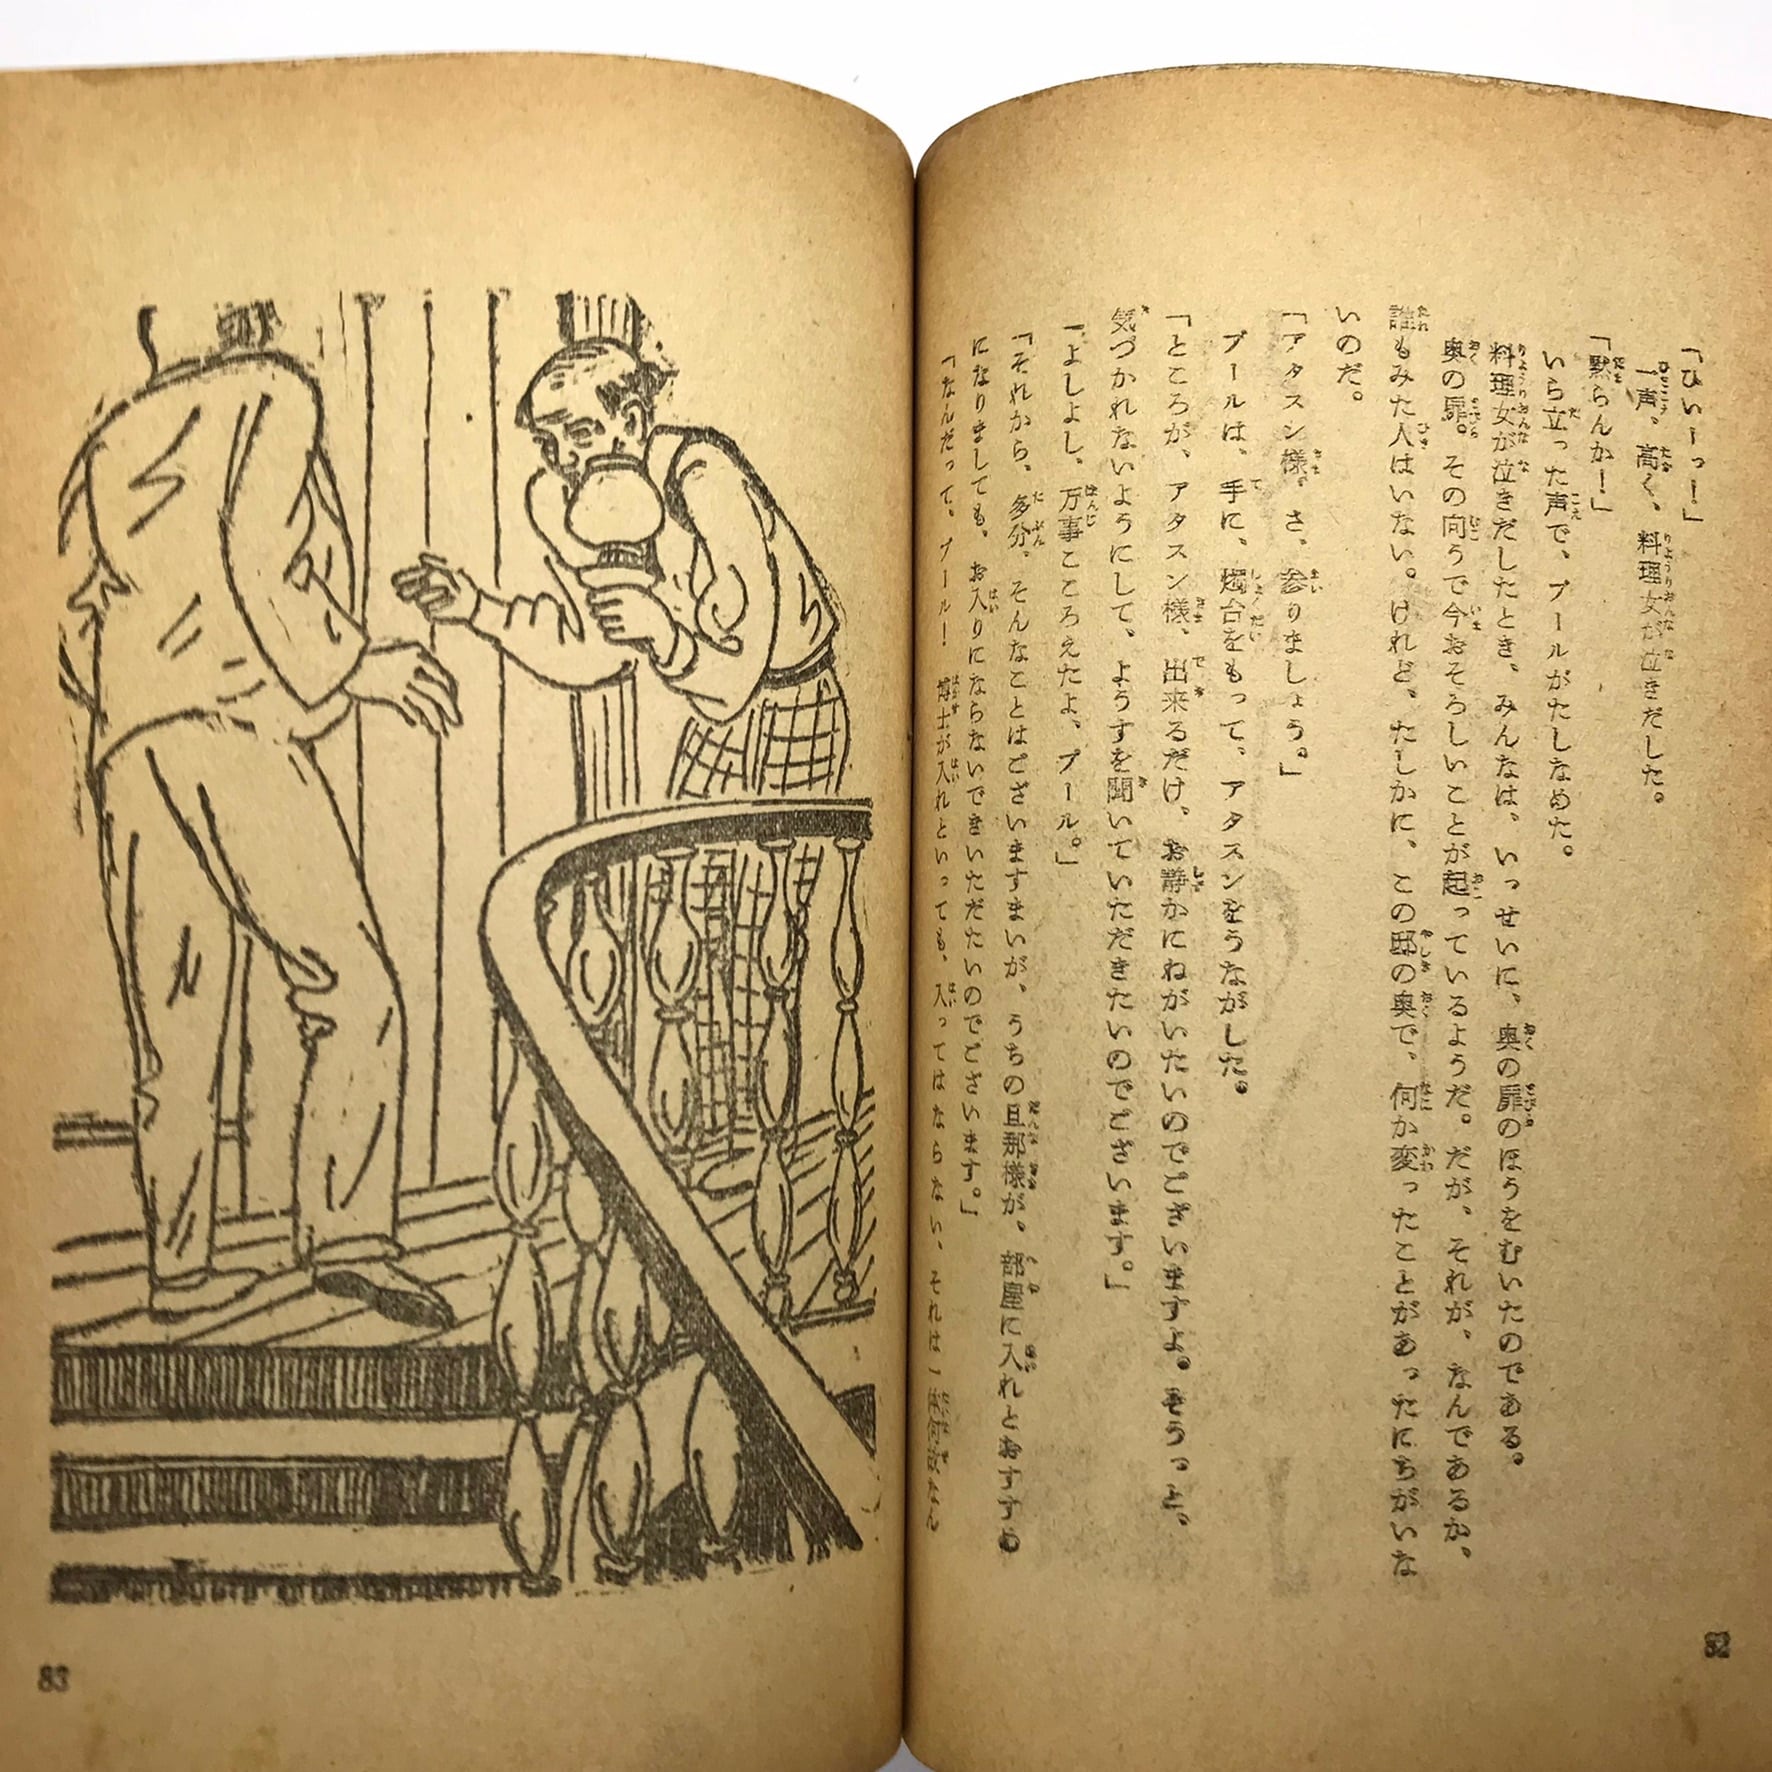 「ひいーっ！」
一声、高く、料理女が泣きだした。
「黙らんか！」
いら立った声で、プールがたしなめた。
料理女が泣きだしたとき、みんなは、いっせいに、奥の扉のほうをむいたのである。
奥の扉。その向うで今おそろしいことが起っているようだ。だが、それが、なんであるか。
誰もみた人はいない。けれど、たしかに、この邸の奥で、何か変ったことがあったにちがいな
いのだ。
「アタスン様。さ、参りましょう。」
プールは、手に、燭台をもって、アタスンをうながした。
「ところが、アタスン様、出来るだけ、お静かにねがいたいのでございますよ。そうっと。
気づかれないようにして、ようすを聞いていただきたいのでございます。」
「よしよし、万事こころえたよ、プール。」
「それから、多分、そんなことはございますまいが、うちの旦那様が、部屋に入れとおすすめ
になりましても、お入りにならないできいただたいのでございます。」
「なんだって、プール！博士が入れといっても、入ってはならない、それは
82
83